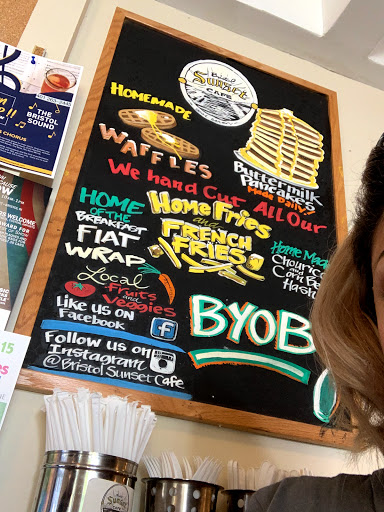 Bristol
Sunset
CAFE
HOMEMADE
WAFFLES
Buttermilk
Pancakes
Made Daily!
We hand Cut All Our
Home Fries
and
FRENCH
FRIES
HOME
OF THE
BREAKFAST
FIAT
WRAP
Home Made
Chourico
and
Corn Be
Hash
Local
fruits
and
Veggies
BYOB
Like us on
Facebook
f
Follow us on
Instagram
@Bristol Sunset Cafe
THE
BRISTOL
SOUND
CHORUS
15
Sunset